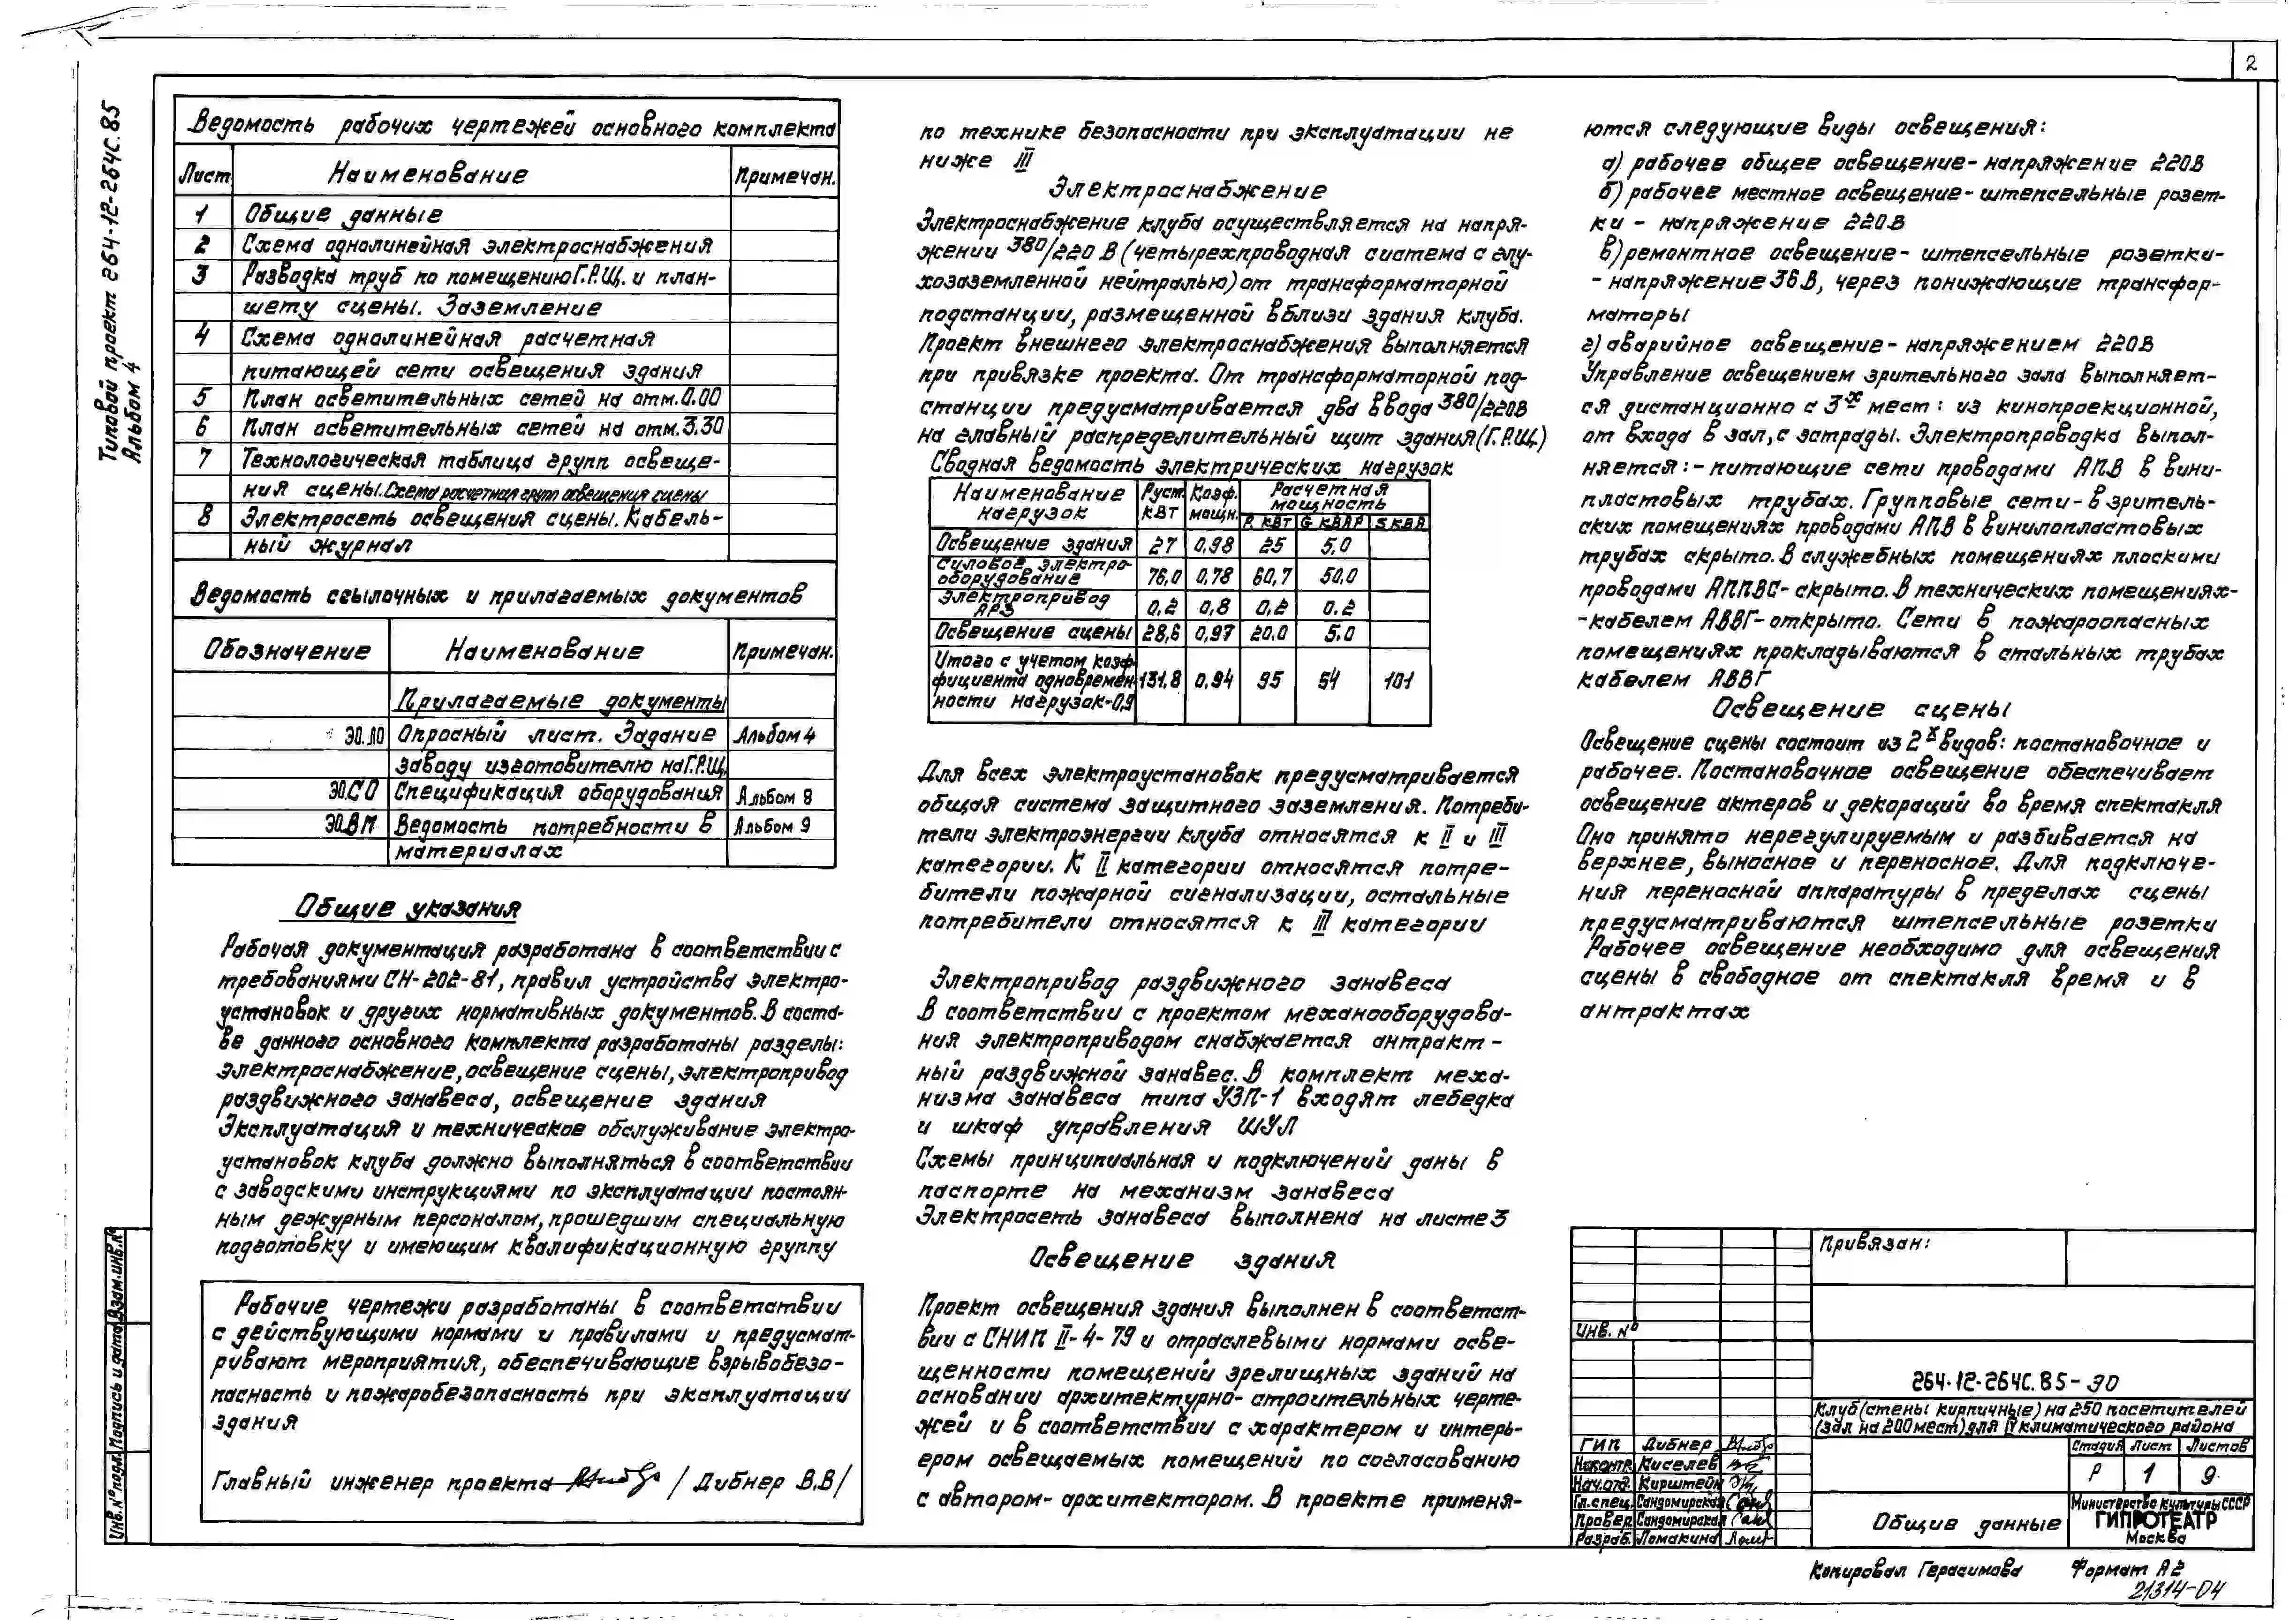 2
Типовой проект 264-12-264С.85
Альбом 4
Ведомость рабочих чертежей основного комплекта
Лист Наименование Примечан.
1 Общие данные
2 Схема однолинейная электроснабжения
3 Разводка труб по помещению Г.Р.Щ. и план-
шету сцены. Заземление
4 Схема однолинейная расчетная
питающей сети освещения здания
5 План осветительных сетей на отм. 0.00
6 План осветительных сетей на отм. 3.30
7 Технологическая таблица групп освеще-
ния сцены. Схема расчетная групп освещения сцены
8 Электросеть освещения сцены. Кабель-
ный журнал
Ведомость ссылочных и прилагаемых документов
Обозначение Наименование Примечан.
Прилагаемые документы
ЭО.ЛО Опросный лист. Задание Альбом 4
заводу изготовителю на Г.Р.Щ.
ЭО.СО Спецификация оборудования Альбом 8
ЭО.ВП Ведомость потребности в Альбом 9
материалах
Общие указания
Рабочая документация разработана в соответствии с
требованиями СН-202-81, правил устройства электро-
установок и других нормативных документов. В соста-
ве данного основного комплекта разработаны разделы:
электроснабжение, освещение сцены, электропривод
раздвижного занавеса, освещение здания
Эксплуатация и техническое обслуживание электро-
установок клуба должно выполняться в соответствии
с заводскими инструкциями по эксплуатации постоян-
ным дежурным персоналом, прошедшим специальную
подготовку и имеющим квалификационную группу
Рабочие чертежи разработаны в соответствии
с действующими нормами и правилами и предусмат-
ривают мероприятия, обеспечивающие взрывобезо-
пасность и пожаробезопасность при эксплуатации
здания
Главный инженер проекта / Дибнер В.В/
по технике безопасности при эксплуатации не
ниже III
Электроснабжение
Электроснабжение клуба осуществляется на напря-
жении 380/220 В (четырехпроводная система с глу-
хозаземленной нейтралью) от трансформаторной
подстанции, размещенной вблизи здания клуба.
Проект внешнего электроснабжения выполняется
при привязке проекта. От трансформаторной под-
станции предусматривается два ввода 380/220В
на главный распределительный щит здания (Г.Р.Щ.)
Сводная ведомость электрических нагрузок
Наименование нагрузок Руст. кВт Коэф. мощн. Расчетная мощность
Р. кВт G кВАР S кВА
Освещение здания 27 0,98 25 5,0
Силовое электро-
оборудование 76,0 0,78 60,7 50,0
Электропривод
АРЗ 0,2 0,8 0,2 0.2
Освещение сцены 28,6 0,97 20.0 5.0
Итого с учетом коэф-
фициента одновремен- 131,8 0,94 95 54 101
ности нагрузок-0,9
Для всех электроустановок предусматривается
общая система защитного заземления. Потреби-
тели электроэнергии клуба относятся к II и III
категории. К II категории относятся потре-
бители пожарной сигнализации, остальные
потребители относятся к III категории
Электропривод раздвижного занавеса
В соответствии с проектом механооборудова-
ния электроприводом снабжается антракт-
ный раздвижной занавес. В комплект меха-
низма занавеса типа УЗП-1 входят лебедка
и шкаф управления ШУЛ
Схемы принципиальная и подключений даны в
паспорте на механизм занавеса
Электросеть занавеса выполнена на листе 3
Освещение здания
Проект освещения здания выполнен в соответст-
вии с СНИП II-4-79 и отраслевыми нормами осве-
щенности помещений зрелищных зданий на
основании архитектурно-строительных черте-
жей и в соответствии с характером и интерь-
ером освещаемых помещений по согласованию
с автором-архитектором. В проекте применя-
ются следующие виды освещения:
а) рабочее общее освещение-напряжение 220В
б) рабочее местное освещение-штепсельные розет-
ки - напряжение 220В
в) ремонтное освещение- штепсельные розетки-
- напряжение 36В, через понижающие трансфор-
маторы
г) аварийное освещение-напряжением 220В
Управление освещением зрительного зала выполняет-
ся дистанционно с 3х мест: из кинопроекционной,
от входа в зал, с эстрады. Электропроводка выпол-
няется:- питающие сети проводами АПВ в вини-
пластовых трубах. Групповые сети- в зритель-
ских помещениях проводами АПВ в винилопластовых
трубах скрыто. В служебных помещениях плоскими
проводами АППВС- скрыто. В технических помещениях-
-кабелем АВВГ-открыто. Сети в пожароопасных
помещениях прокладываются в стальных трубах
кабелем АВВГ
Освещение сцены
Освещение сцены состоит из 2х видов: постановочное и
рабочее. Постановочное освещение обеспечивает
освещение актеров и декораций во время спектакля
Оно принято нерегулируемым и разбивается на
верхнее, выносное и переносное. Для подключе-
ния переносной аппаратуры в пределах сцены
предусматриваются штепсельные розетки
Рабочее освещение необходимо для освещения
сцены в свободное от спектакля время и в
антрактах
Привязан:
Инв. №
264-12-264С.85-ЭО
Клуб (стены кирпичные) на 250 посетителей
(зал на 200 мест) для IV климатического района
ГИП Дибнер
Н.контр. Киселев
Нач.отд. Кирштейн
Гл.спец. Сандомирская
Провер. Сандомирская
Разраб. Ломакина
Стадия Лист Листов
Р 1 9
Общие данные
Министерство культуры СССР
ГИПРОТЕАТР
Москва
Инв.№подл. Подпись и дата Взам.инв.№
Копировал Герасимова Формат А2
21314-04